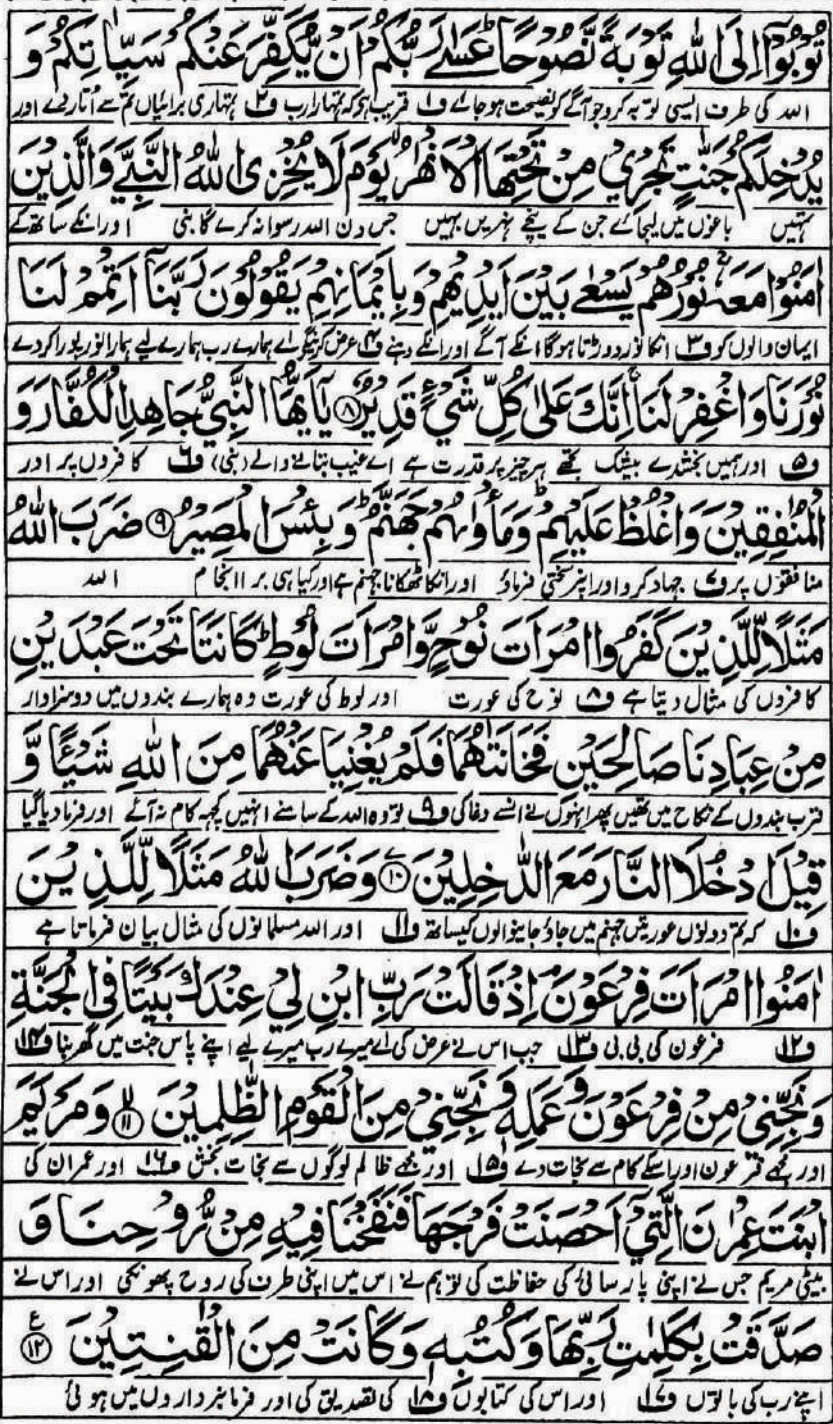 تُوْبُوْۤا اِلَى اللّٰهِ تَوْبَةً نَّصُوْحًاؕ عَسٰى رَبُّكُمْ اَنْ یُّكَفِّرَ عَنْكُمْ سَیِّاٰتِكُمْ وَ
اللہ کی طرف ایسی توبہ کرو جو آگے کو نصیحت ہوجائے ف۱ قریب ہو کہ تمہارا رب ف۲ تمہاری برائیاں تم سے اُتار دے اور
یُدْخِلَكُمْ جَنّٰتٍ تَجْرِیْ مِنْ تَحْتِهَا الْاَنْهٰرُۙ یَوْمَ لَا یُخْزِی اللّٰهُ النَّبِیَّ وَالَّذِیْنَ
تمہیں باغوں میں لیجائے جن کے نیچے نہریں بہیں جس دن اللہ رسوا نہ کرے گا نبی اور انکے ساتھ کے
اٰمَنُوْا مَعَهٗۚ نُوْرُهُمْ یَسْعٰى بَیْنَ اَیْدِیْهِمْ وَبِاَیْمَانِهِمْ یَقُوْلُوْنَ رَبَّنَاۤ اَتْمِمْ لَنَا
ایمان والوں کو ف۳ انکا نور دوڑتا ہوگا انکے آگے اور انکے دہنے ف۴ عرض کرینگے اے ہمارے رب ہمارے لیے ہمارا نور پورا کردے
نُوْرَنَا وَاغْفِرْ لَنَاۚ اِنَّكَ عَلٰى كُلِّ شَیْءٍ قَدِیْرٌ ۝۸ یٰۤاَیُّهَا النَّبِیُّ جَاهِدِ الْكُفَّارَ وَ
ف۵ اور ہمیں بخشدے بیشک تجھے ہر چیز پر قدرت ہے اے غیب بتانے والے (نبی) ف۶ کافروں پر اور
الْمُنٰفِقِیْنَ وَاغْلُظْ عَلَیْهِمْؕ وَمَاْوٰىهُمْ جَهَنَّمُؕ وَبِئْسَ الْمَصِیْرُ ۝۹ ضَرَبَ اللّٰهُ
منافقوں پر ف۷ جہاد کرو اور اپنر سختی فرماؤ اور انکا ٹھکانا جہنم ہے اور کیا ہی برا انجام اللہ
مَثَلًا لِّلَّذِیْنَ كَفَرُوا امْرَاَتَ نُوْحٍ وَّامْرَاَتَ لُوْطٍؕ كَانَتَا تَحْتَ عَبْدَیْنِ
کافروں کی مثال دیتا ہے ف۸ نوح کی عورت اور لوط کی عورت وہ ہمارے بندوں میں دو سزاوار
مِنْ عِبَادِنَا صَالِحَیْنِ فَخَانَتٰهُمَا فَلَمْ یُغْنِیَا عَنْهُمَا مِنَ اللّٰهِ شَیْـًٔا وَّ
قرب بندوں کے نکاح میں تھیں پھر انہوں نے انسے دغا کی ف۹ تو وہ اللہ کے سامنے انہیں کچھ کام نہ آئے اور فرمادیا گیا
قِیْلَ ادْخُلَا النَّارَ مَعَ الدّٰخِلِیْنَ ۝۱۰ وَضَرَبَ اللّٰهُ مَثَلًا لِّلَّذِیْنَ
ف۱۰ کہ تم دونوں عورتیں جہنم میں جاؤ جانیوالوں کیساتھ ف۱۱ اور اللہ مسلمانوں کی مثال بیان فرماتا ہے
اٰمَنُوا امْرَاَتَ فِرْعَوْنَۘ اِذْ قَالَتْ رَبِّ ابْنِ لِیْ عِنْدَكَ بَیْتًا فِی الْجَنَّةِ
ف۱۲ فرعون کی بی بی ف۱۳ جب اس نے عرض کی اے میرے رب میرے لیے اپنے پاس جنت میں گھر بنا ف۱۴
وَنَجِّنِیْ مِنْ فِرْعَوْنَ وَعَمَلِهٖ وَنَجِّنِیْ مِنَ الْقَوْمِ الظّٰلِمِیْنَ ۝۱۱ وَمَرْیَمَ
اور مجھے فرعون اور اسکے کام سے نجات دے ف۱۵ اور مجھے ظالم لوگوں سے نجات بخش ف۱۶ اور عمران کی
ابْنَتَ عِمْرٰنَ الَّتِیْۤ اَحْصَنَتْ فَرْجَهَا فَنَفَخْنَا فِیْهِ مِنْ رُّوْحِنَا وَ
بیٹی مریم جس نے اپنی پارسائی کی حفاظت کی تو ہم نے اس میں اپنی طرف کی روح پھونکی اور اس نے
صَدَّقَتْ بِكَلِمٰتِ رَبِّهَا وَكُتُبِهٖ وَكَانَتْ مِنَ الْقٰنِتِیْنَ ۝۱۲ ع
اپنے رب کی باتوں ف۱۷ اور اس کی کتابوں ف۱۸ کی تصدیق کی اور فرمانبرداروں میں ہوئی